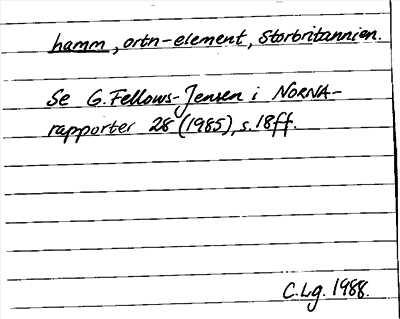 hamm, ortn-element, Storbritannien.
Se G. Fellows-Jensen i NORNA-
rapporter 28 (1985), s. 18ff.
C.Lg. 1988.